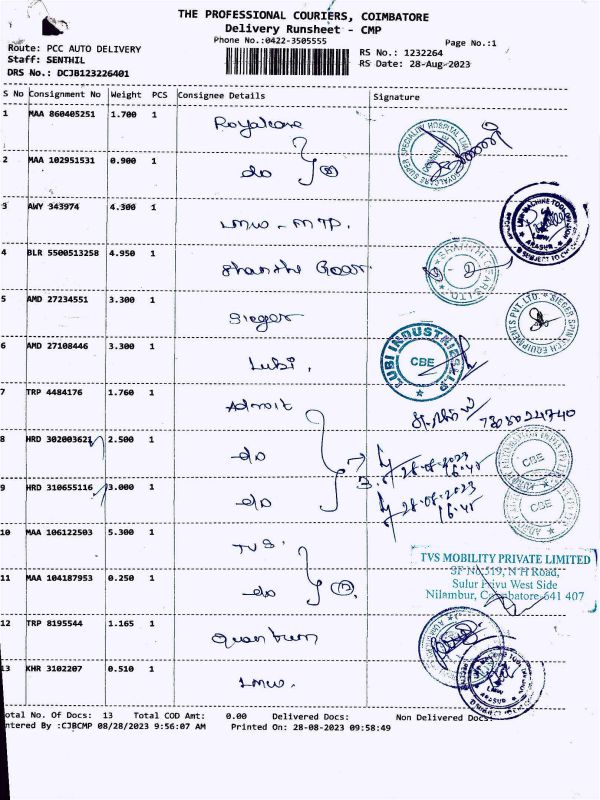 THE PROFESSIONAL COURIERS, COIMBATORE
Delivery Runsheet - CMP
Phone No.:0422-3505555
Page No.:1
Route: PCC AUTO DELIVERY
RS No.: 1232264
Staff: SENTHIL
RS Date: 28-Aug-2023
DRS No.: DCJB123226401
S No Consignment No Weight PCS Consignee Details Signature
1 MAA 860405251 1.700 1 Royalcare
2 MAA 102951531 0.900 1 do
3 AWY 343974 4.300 1 LMW - MTD.
4 BLR 5500513258 4.950 1 Shanthi Gears
5 AMD 27234551 3.300 1 Sieger
SIEGER SPINTECH EQUIPMENTS PVT LTD.
6 AMD 27108446 3.300 1 Lubi.
LUBI INDUSTRIES LLP
CBE
7 TRP 4484176 1.760 1 Admoit
7305024740
8 HRD 302003621 2.500 1 do
28-08-2023
16:45
CBE
9 HRD 310655116 3.000 1 do
28-08-2023
16:45
CBE
10 MAA 106122503 5.300 1 TVS.
TVS MOBILITY PRIVATE LIMITED
SF No.519, N H Road,
Sulur Privu West Side
Nilambur, Coimbatore-641 407
11 MAA 104187953 0.250 1 do
12 TRP 8195544 1.165 1 Quantum
13 KHR 3102207 0.510 1 LMW.
otal No. Of Docs: 13 Total COD Amt: 0.00 Delivered Docs: Non Delivered Docs:
ntered By :CJBCMP 08/28/2023 9:56:07 AM Printed On: 28-08-2023 09:58:49